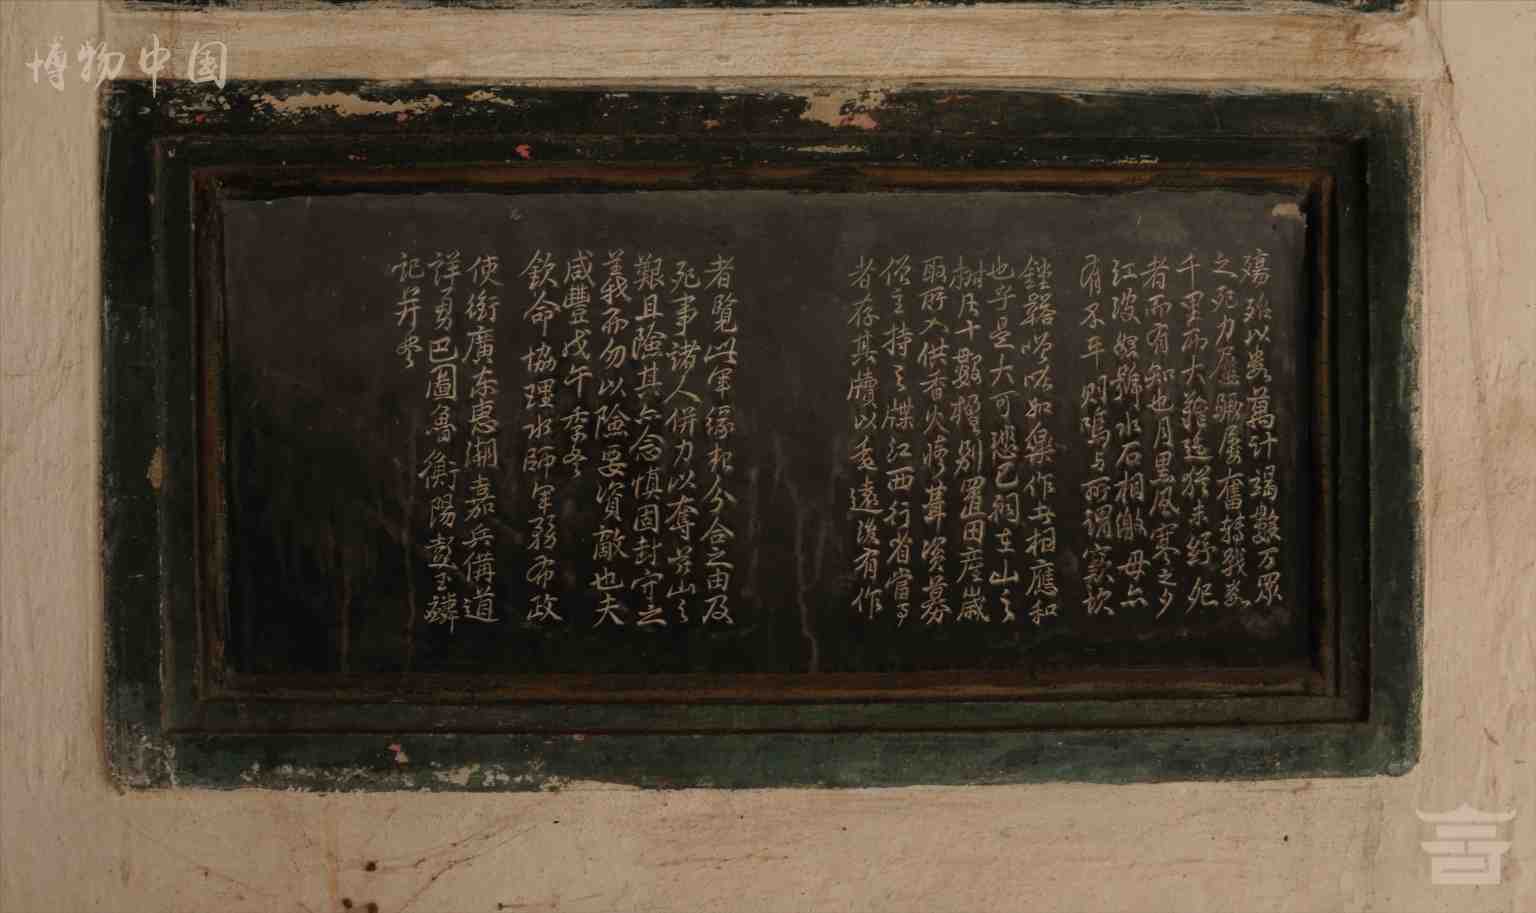 博物中国
殤殆以婁萬計竭數万眾
之死力屢踬屢奮轉戰數
千里而大難迄猶未經
者而有知也月黑風寒之夕
江波嗚號水石相激毋亦
有不平則鳴与所謂窾坎
鏜鞳噌吰如樂作者相應和
也乎是大可悲已祠在山之
樹凡十數楹别置田産歲
取所入供香火
僧主持之牒江西行省當事
者存其牘以垂遠後有作
者覽此軍緣起分合之由及
死事諸人併力以奪茲山之
艱且險其亦念慎固封守之
義而勿以險要資敵也夫
咸豐戊午季冬
欽命協理水師軍務布政
使銜廣東惠潮嘉兵備道
詳勇巴圖魯衡陽彭玉麟
記并書